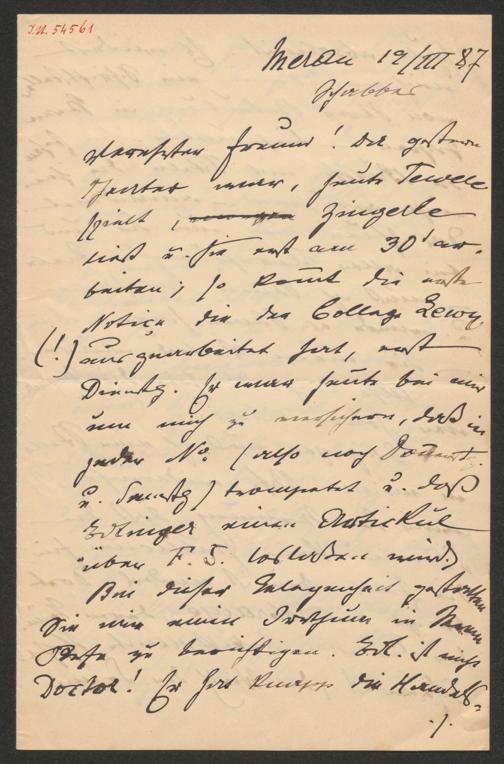 I.N. 54561
Meran 19/III 87
Verehrter Freund! Da gestern
Theater war, heute Tewele
spielt, Zingerle
ließ u. Sie erst am 30' ar-
beiten; so komt die erste
Notiz, die der College Lewy
(!) ausgearbeitet hat, erst
Dienstg. Er war heute bei mir
um mich zu versichern, daß in
jeder No. (also noch Donnerst.
u. Samstg) trompetet u. daß
Edlinger einen Artickul
über F. J. loslaßen wird.
Bei dieser Gelegenheit gestatten
Sie mir einen Irrthum in
zu berichtigen. Edl. ist nicht
Doctor! Er hat knapp die Handels-
./.